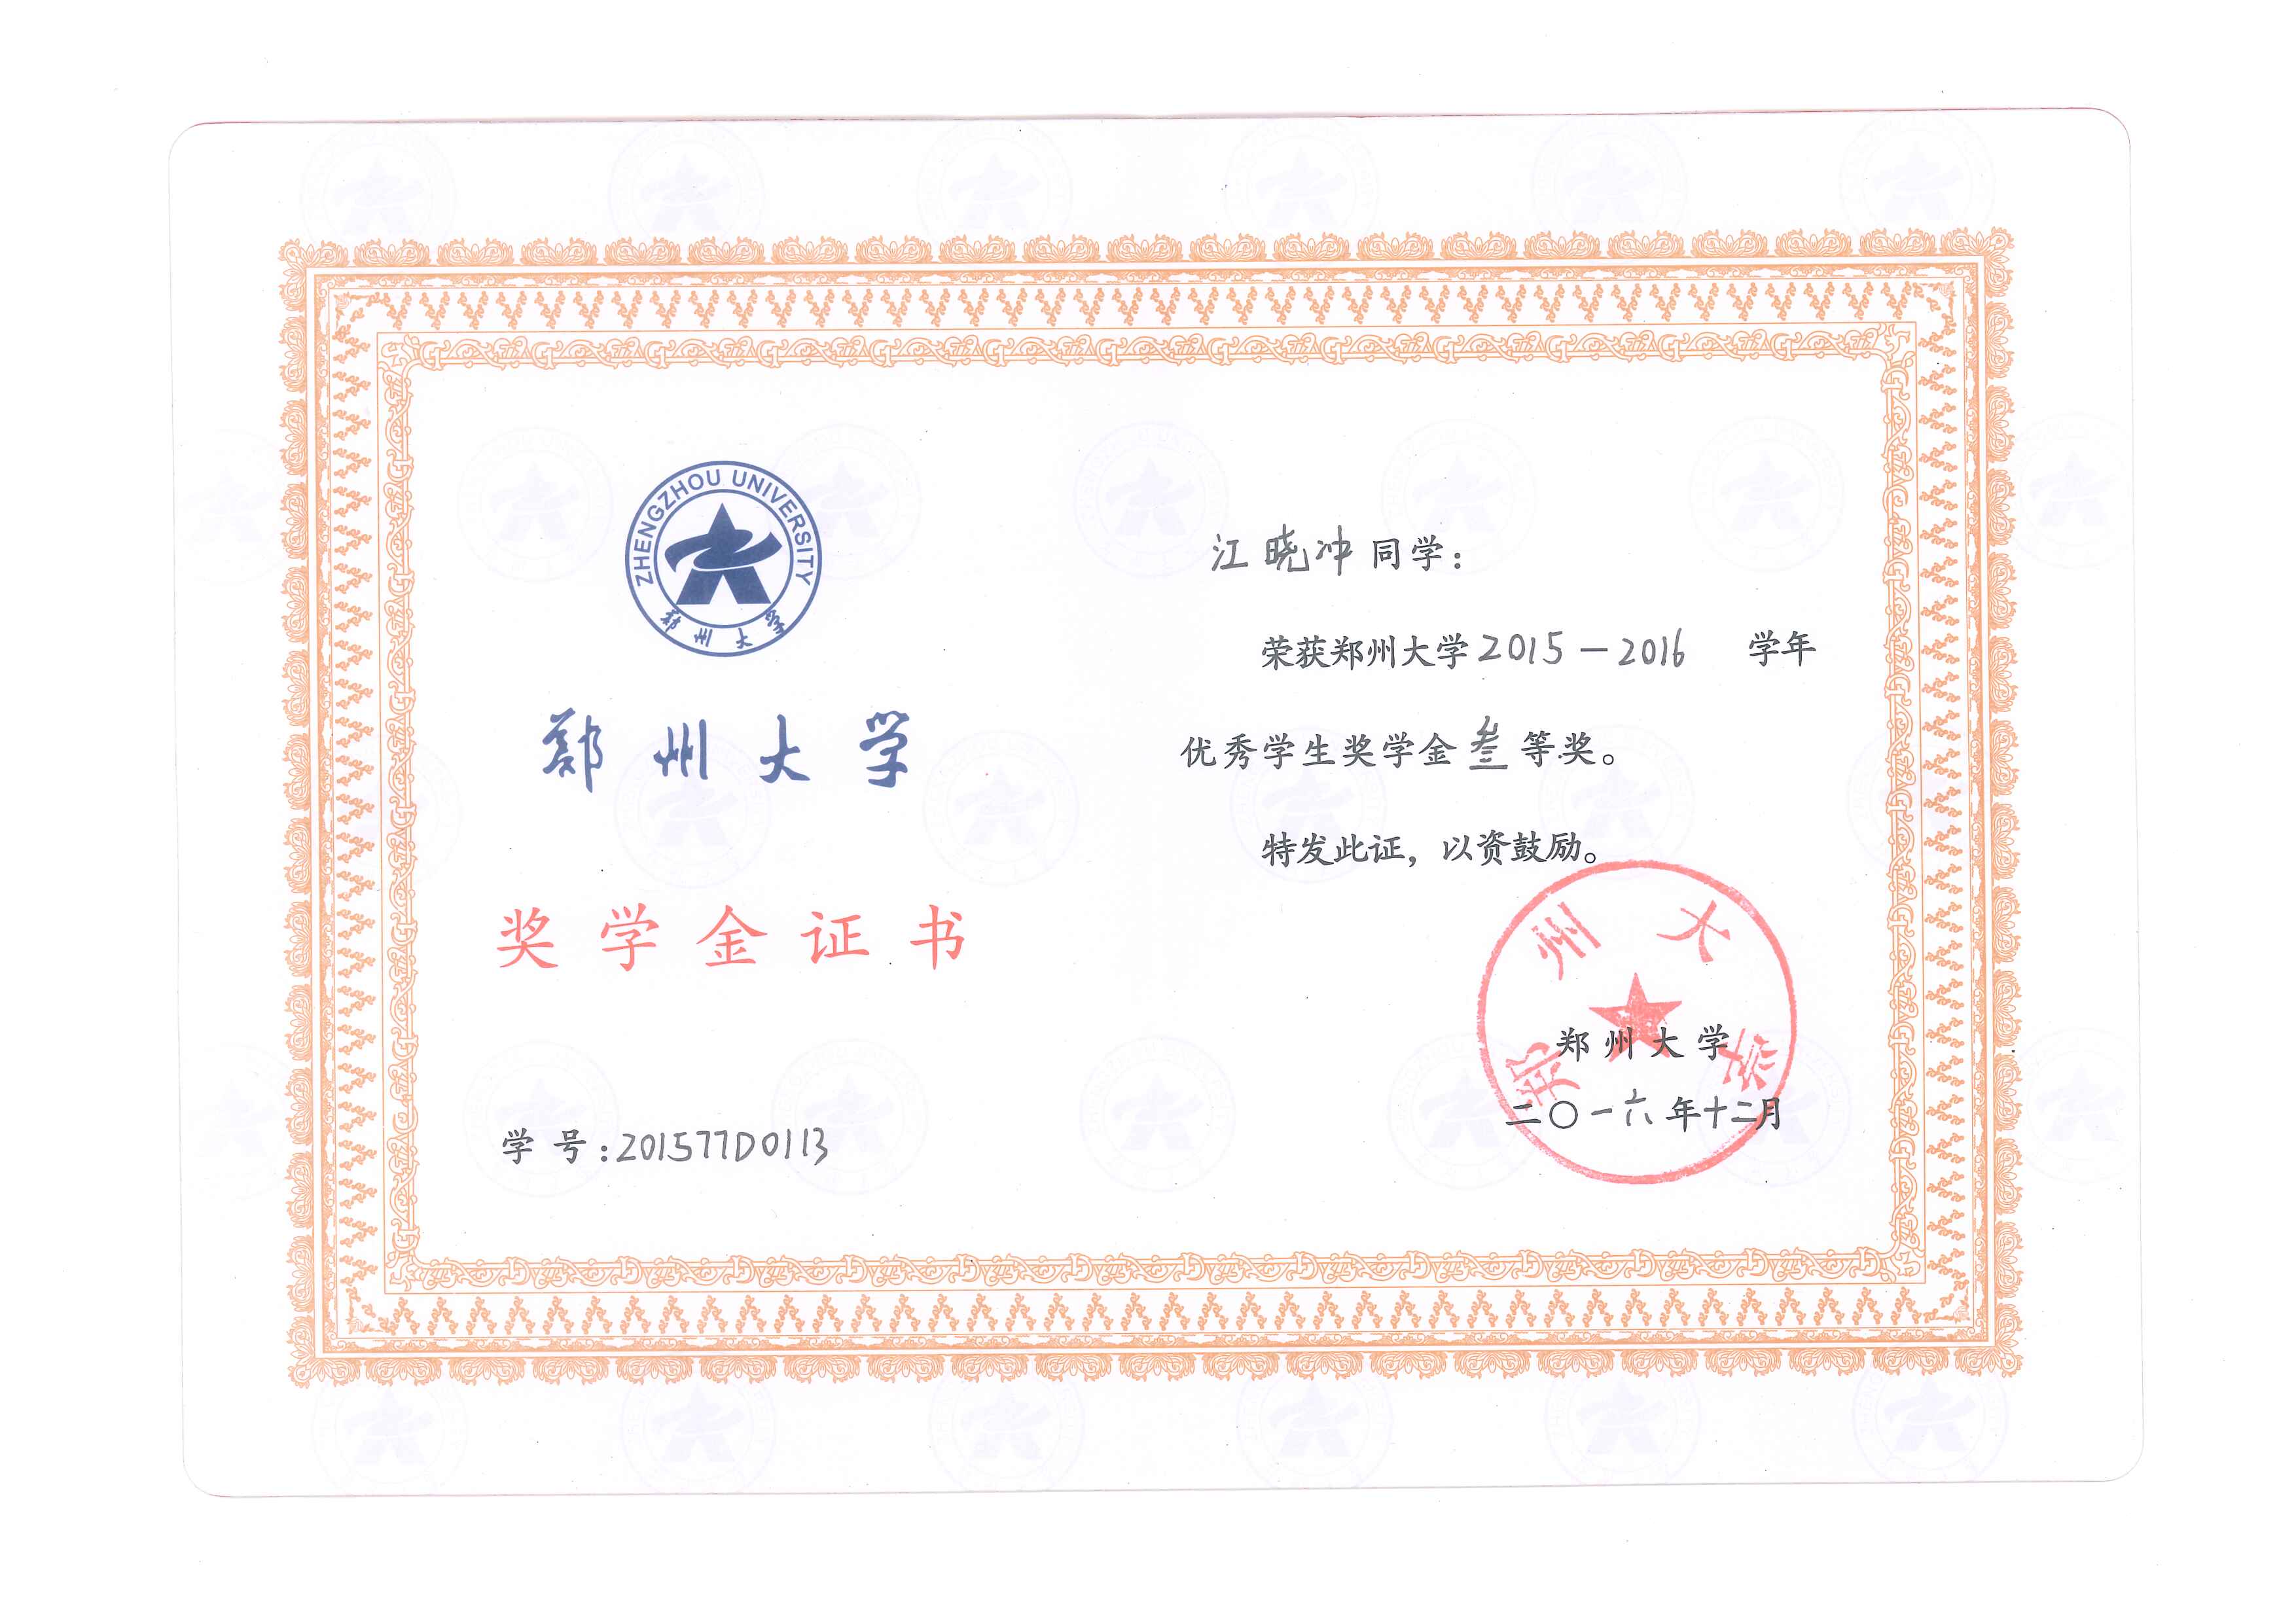 ZHENGZHOU UNIVERSITY
郑州大学
郑州大学
奖学金证书
学号:201577D0113
江晓冲同学:
荣获郑州大学2015-2016 学年
优秀学生奖学金叁等奖。
特发此证，以资鼓励。
郑州大学
郑州大学
二〇一六年十二月